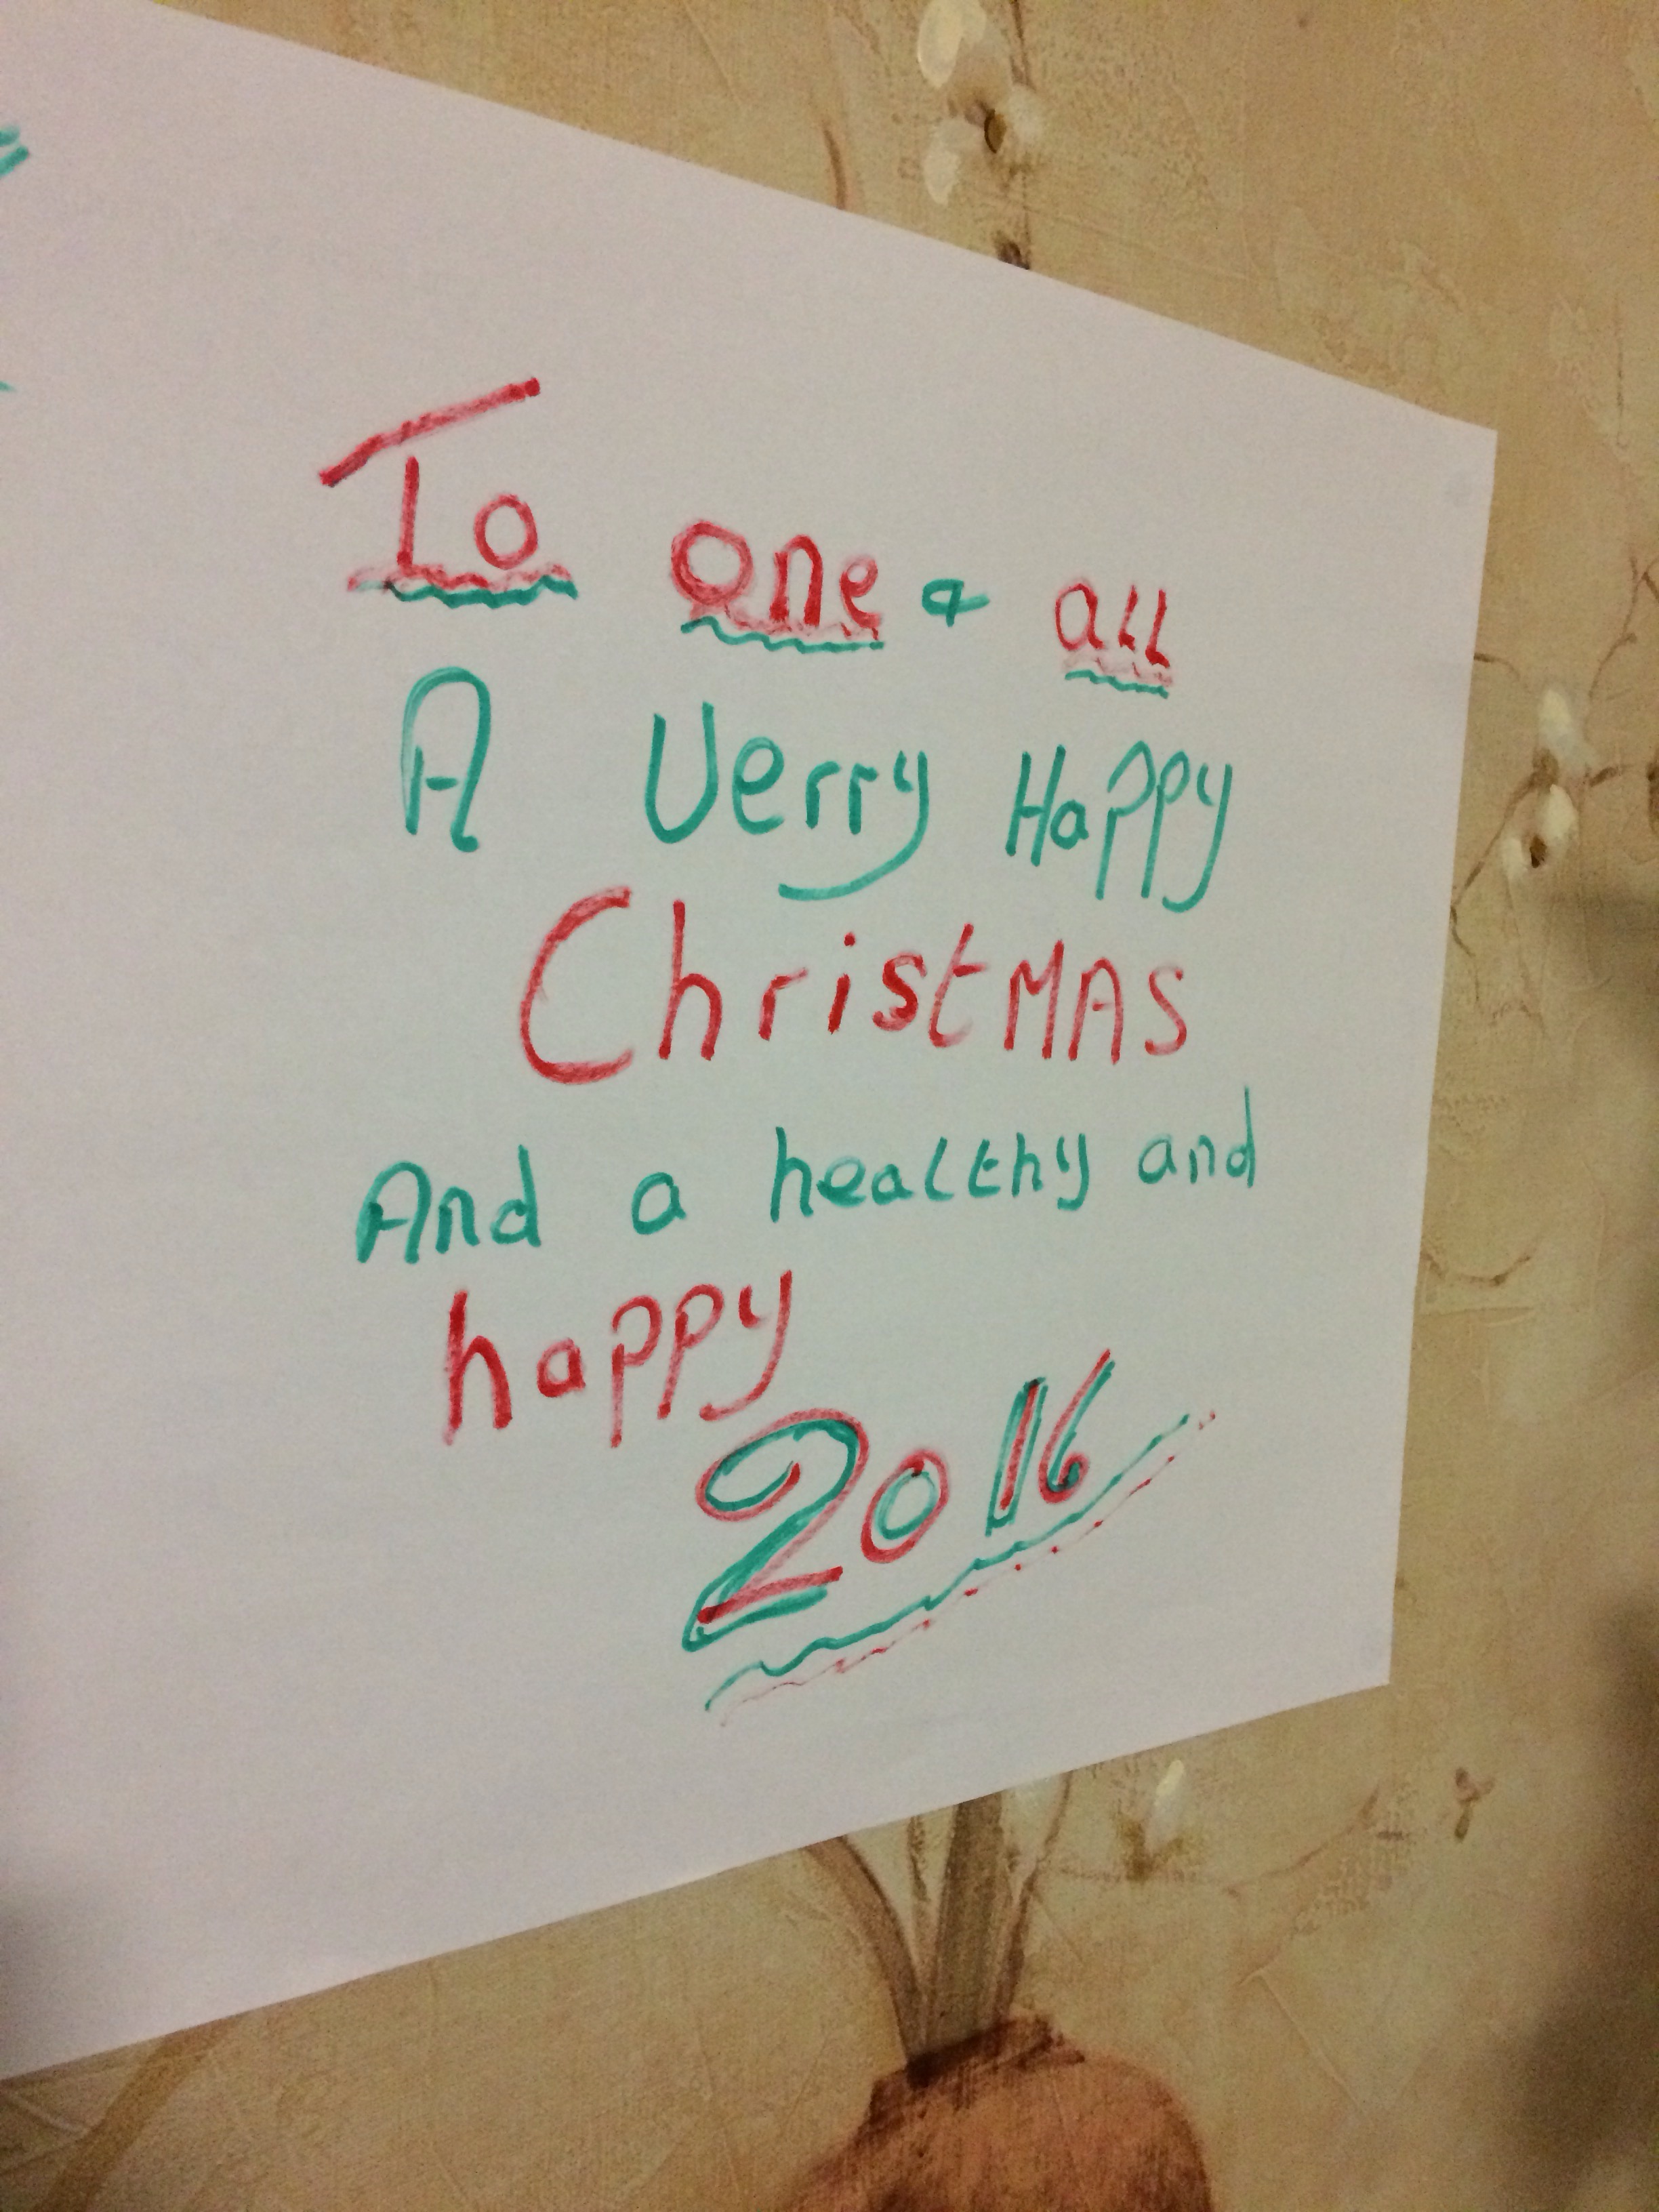 To one & all
A Verry Happy
ChristMAS
And a healthy and
happy
2016